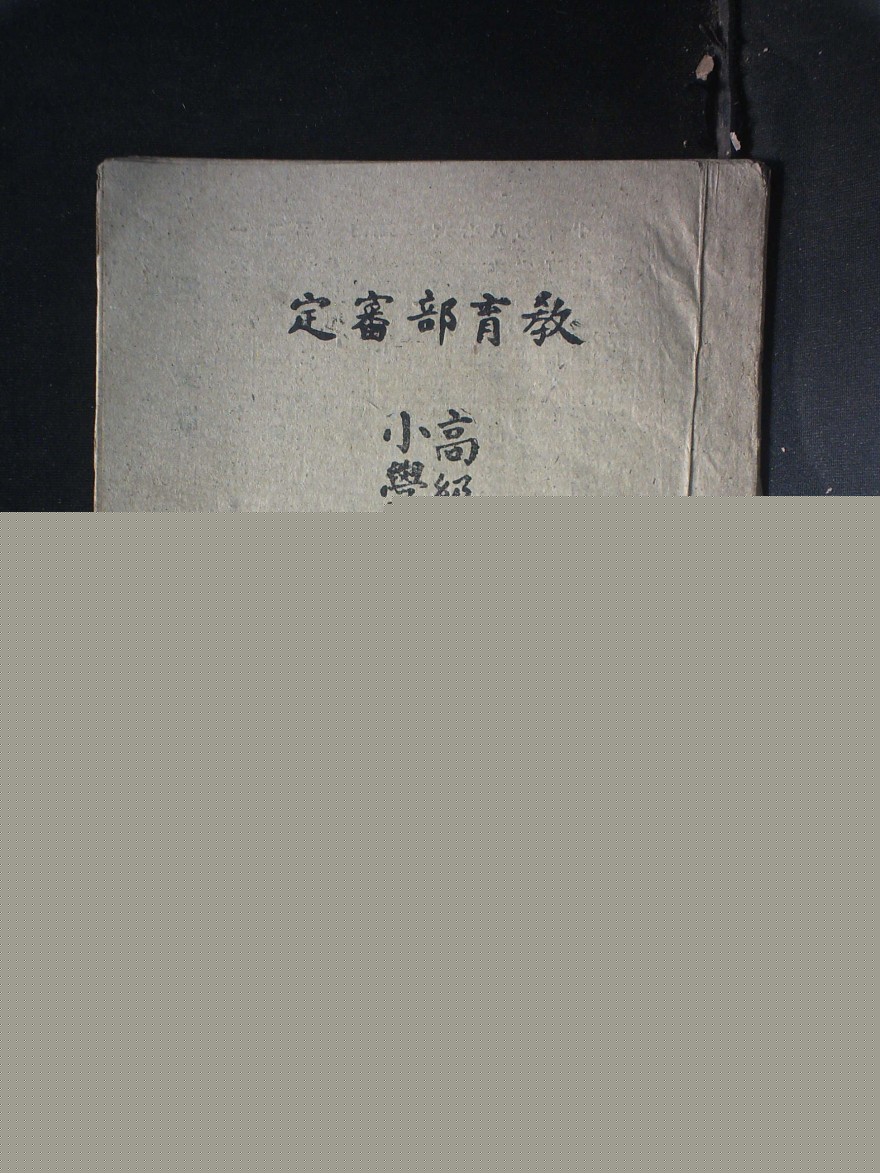 教育部審定
高級
小學